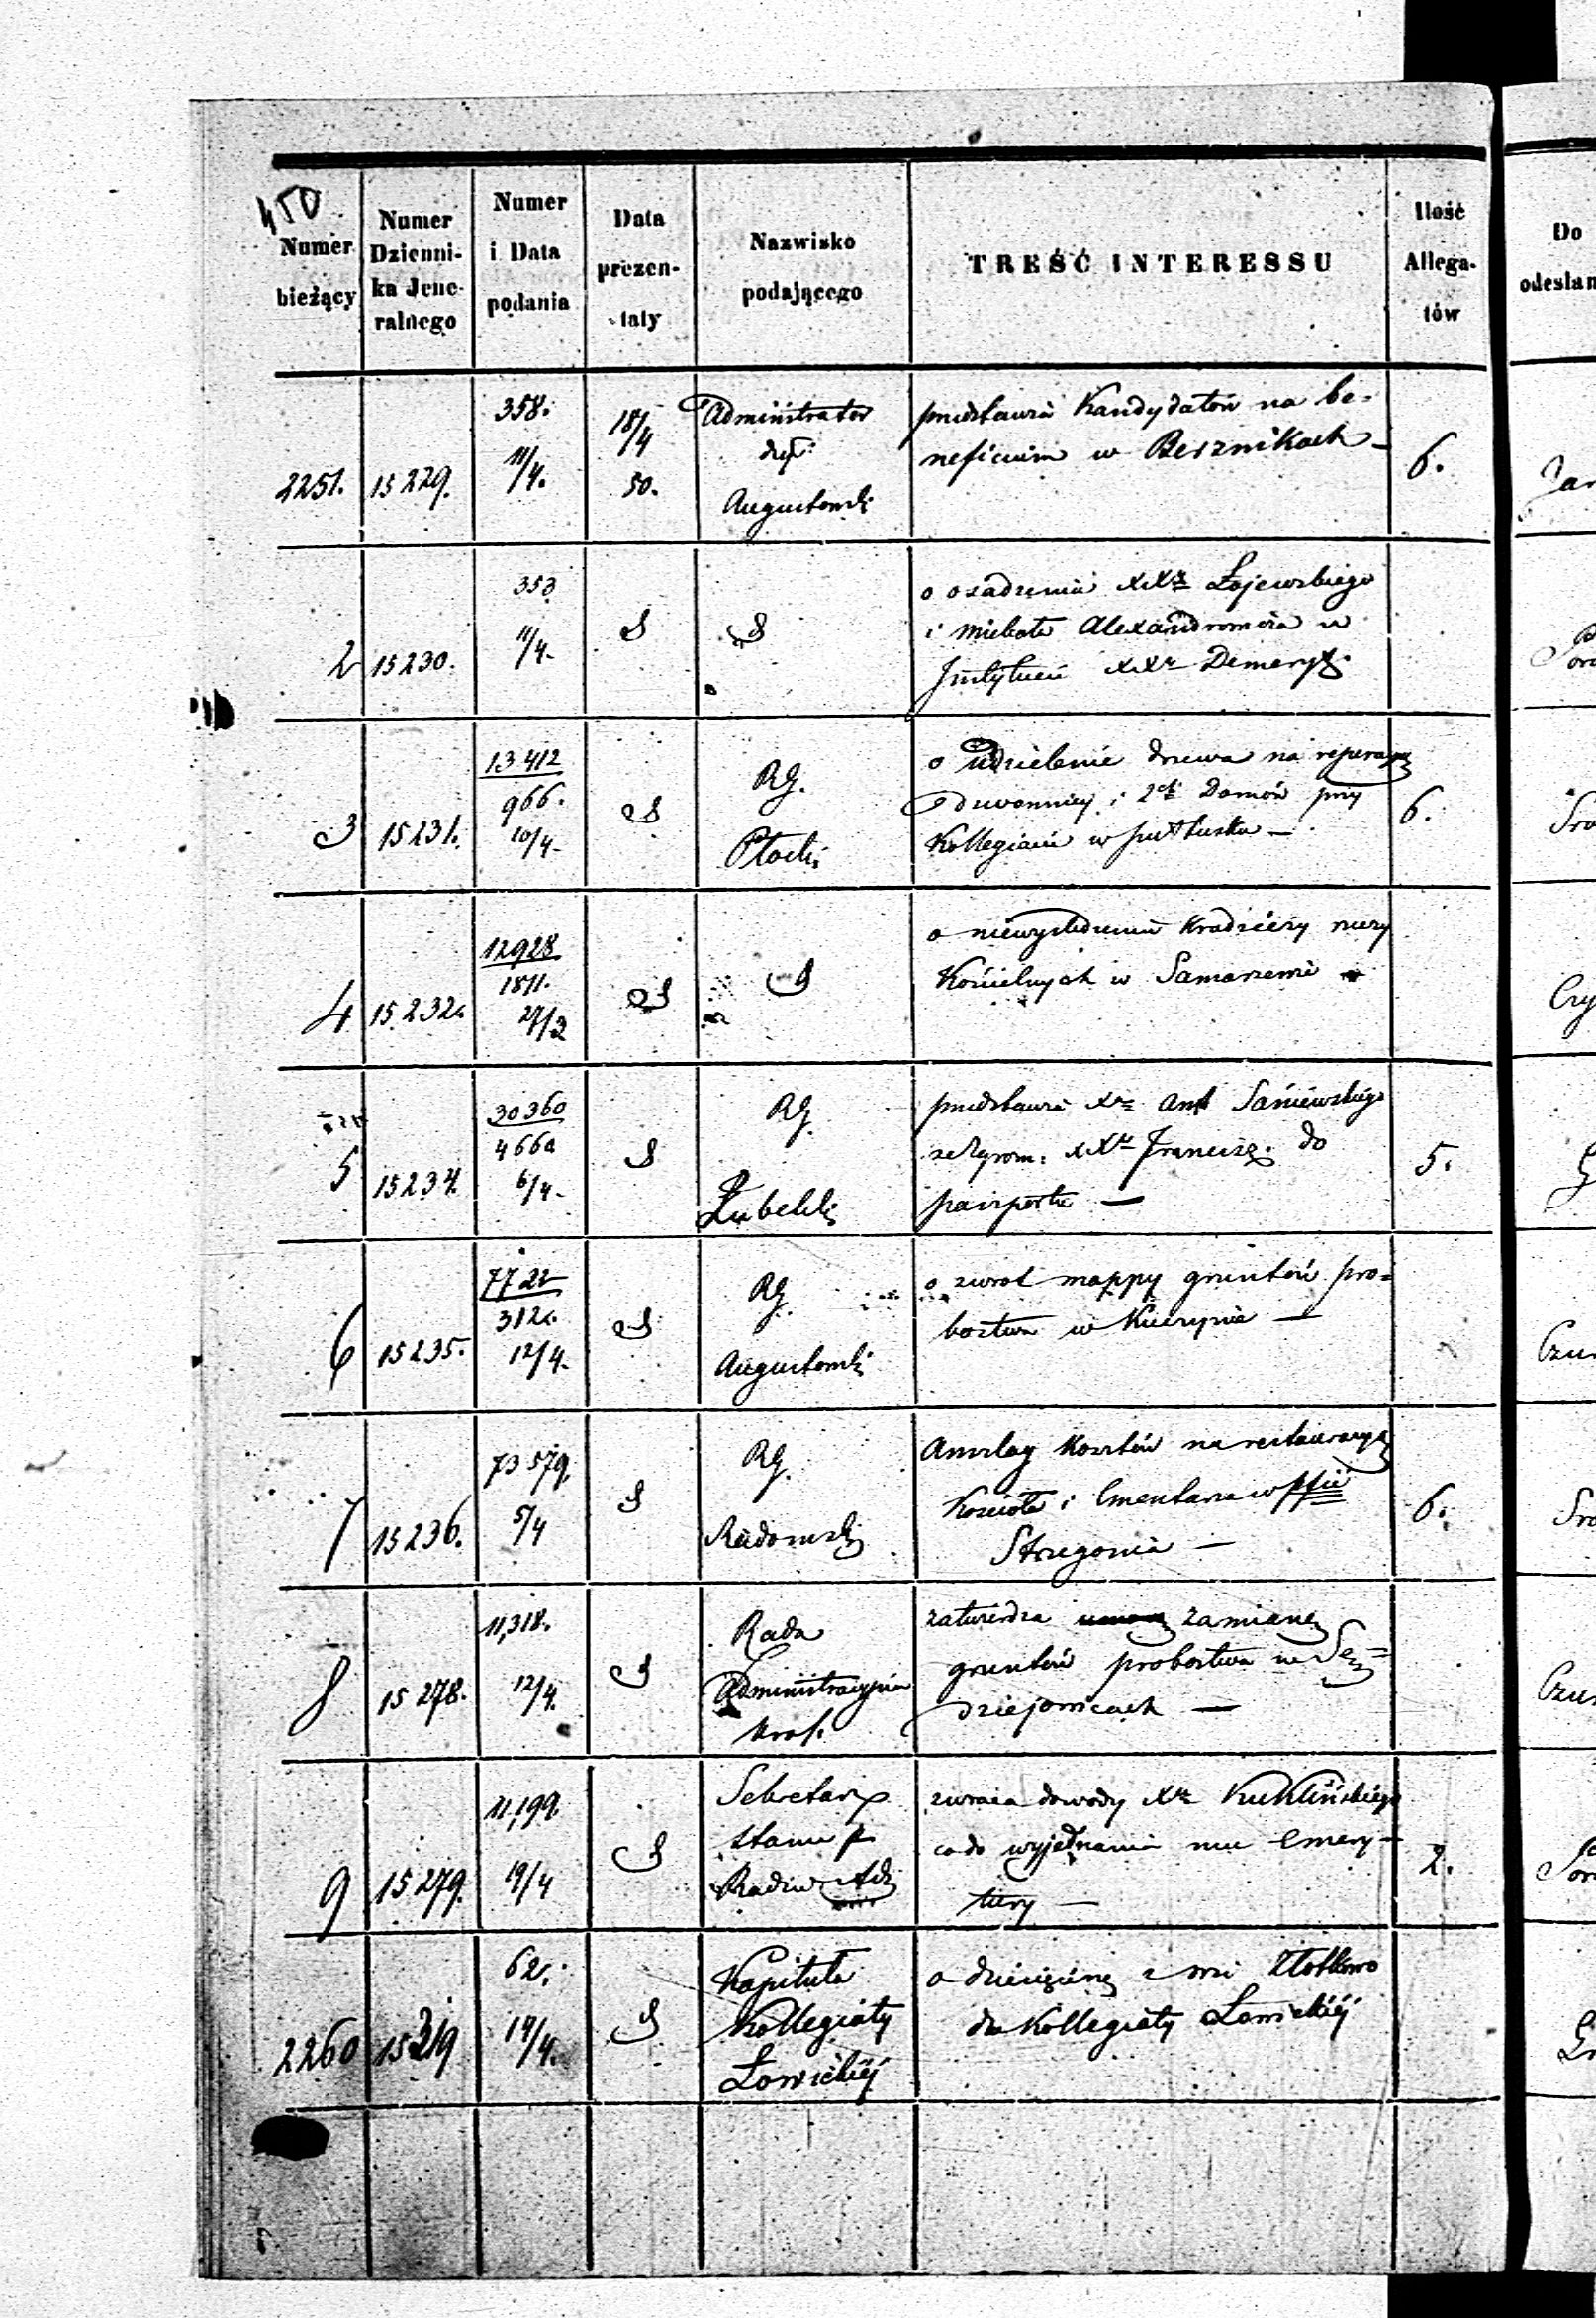 450
Numer bieżący
Numer Dzienni-ka Jene-ralnego
Numer i Data podania
Data prezen-taty
Nazwisko podającego
TREŚĆ INTERESSU
Ilość Allega-tów
Do odesłan
2251. 15229. 358. 11/4. 18/4 50. Administrator dyec. Augustowski
przedstawia Kandydatów na be-
neficium w Bersznikach –
6.
2 15230. 353 11/4.
o osadzeniu XXzy Łojewskiego
i Michała Alexandrowicza w
Instytucie XXzy Demeryt.
3 15231. 13412 966. 10/4.
RG.
Płocki
o udzielenie drzewa na reperacyą
dzwonnicy i 2ch Domów przy
Kollegiacie w Pułtusku –
6.
4 15232. 12928 1811. 27/3
o niewyśledzeniu Kradzieży rzeczy
Kościelnych w
5 15234. 30360 4660 6/4.
RG.
Lubelski
przedstawia Xa Ant
ze Zgrom. XXzy Francisz. do
paszportu –
5.
6 15235. 7722 312. 12/4.
RG.
Augustowski
o zwrot mappy gruntów pro-
bostwa w
7 15236. 73579. 5/4
RG.
Radomski
Anszlag Kosztów na restauracyą
Kościoła i Cmentarza w pfii
Strzegomia –
6.
8 15278. 11,318. 12/4.
Rada
Administracyjna
Król.
zatwierdza zamianę
gruntów probostwa w Sę-
dziejowicach –
9 15279. 11,199. 19/4
Sekretarz
Stanu p
Radzie Adm
zwraca dowody Xa Kuklińskiego
co do wyjednania mu emery-
tury –
2.
2260 15319 62. 14/4.
Kapituła
Kollegiaty
Łowickiéj
o dziesięcinę z wsi Złotkowo
dla Kollegiaty Łowickiéj